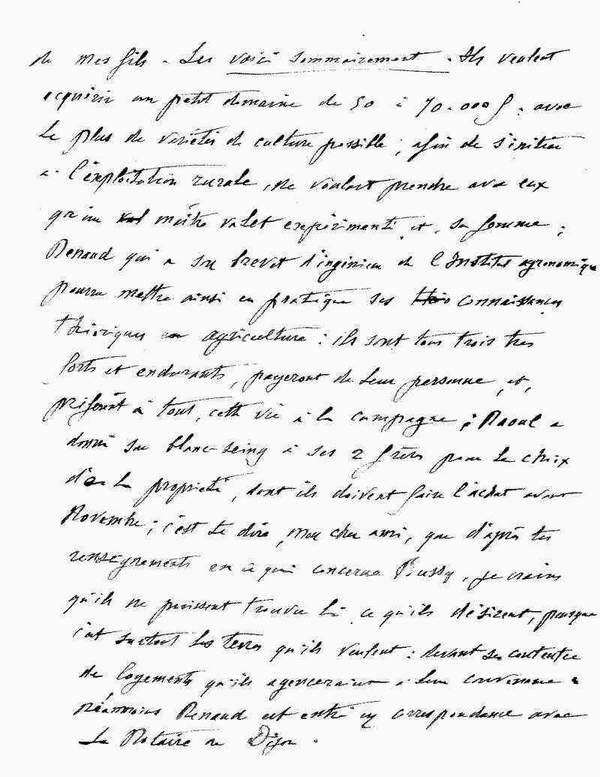 de mes fils - Les voici sommairement. Ils veulent
acquérir un petit domaine de 50 à 70.000 f. avec
le plus de variétés de culture possible, afin de s'initier
à l'exploitation rurale, ne voulant prendre avec eux
qu'un maître valet expérimenté et sa femme ;
Renaud qui a son brevet d'ingénieur de l'Institut agronomique
pourra mettre ainsi en pratique ses connaissances
théoriques en agriculture : ils sont tous trois très
forts et endurants, payeront de leur personne, et,
préfèrent à tout, cette vie à la campagne ; Raoul a
donné son blanc-seing à ses 2 frères pour le choix
de la propriété, dont ils doivent faire l'achat avant
Novembre ; c'est te dire, mon cher ami, que d'après tes
renseignements en ce qui concerne Bussy, je crains
qu'ils ne puissent trouver là ce qu'ils désirent, puisque
c'est surtout les terres qu'ils veulent : devant se contenter
de logements qu'ils agenceraient à leur convenance.
Néanmoins Renaud est entré en correspondance avec
le Notaire de Dijon.